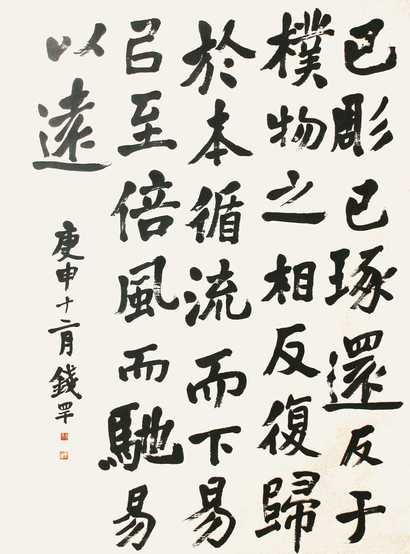 已彫已琢還反于
樸物之相反復歸
於本循流而下易
㠯至倍風而馳易
以遠
庚申十二月錢罕